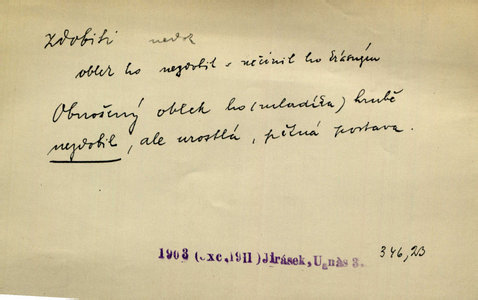 zdobiti nedok
oblek ho nezdobil = nečinil ho krásným
Obnošený oblek ho (mladíka) hrubě
nezdobil, ale urostlá, pěkná postava.
1903 (exc. 1911) Jirásek, U nás 3. 346, 23